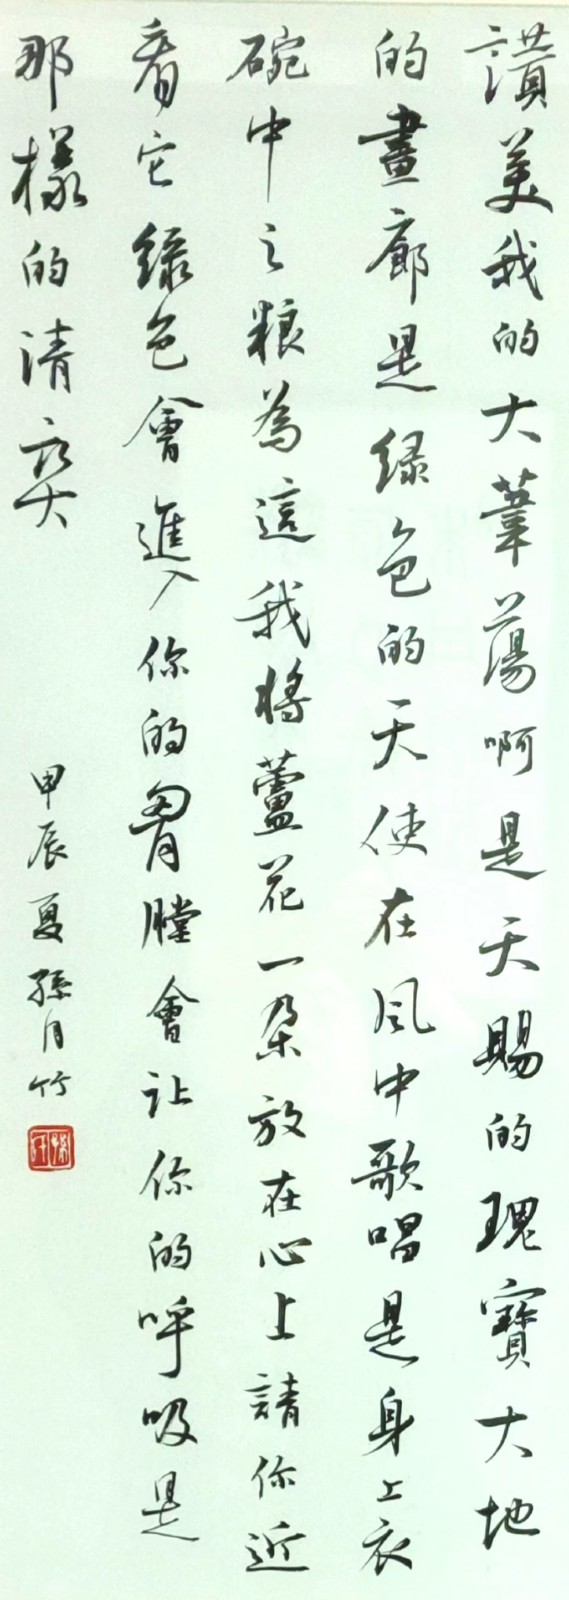 讃美我的大葦蕩啊是天賜的瑰寶大地
的畫廊是緑色的天使在风中歌唱是身上衣
碗中之粮為這我将蘆花一朵放在心上請你近
看它緑色會進入你的胷膛會让你的呼吸是
那樣的清爽
甲辰夏孫月竹